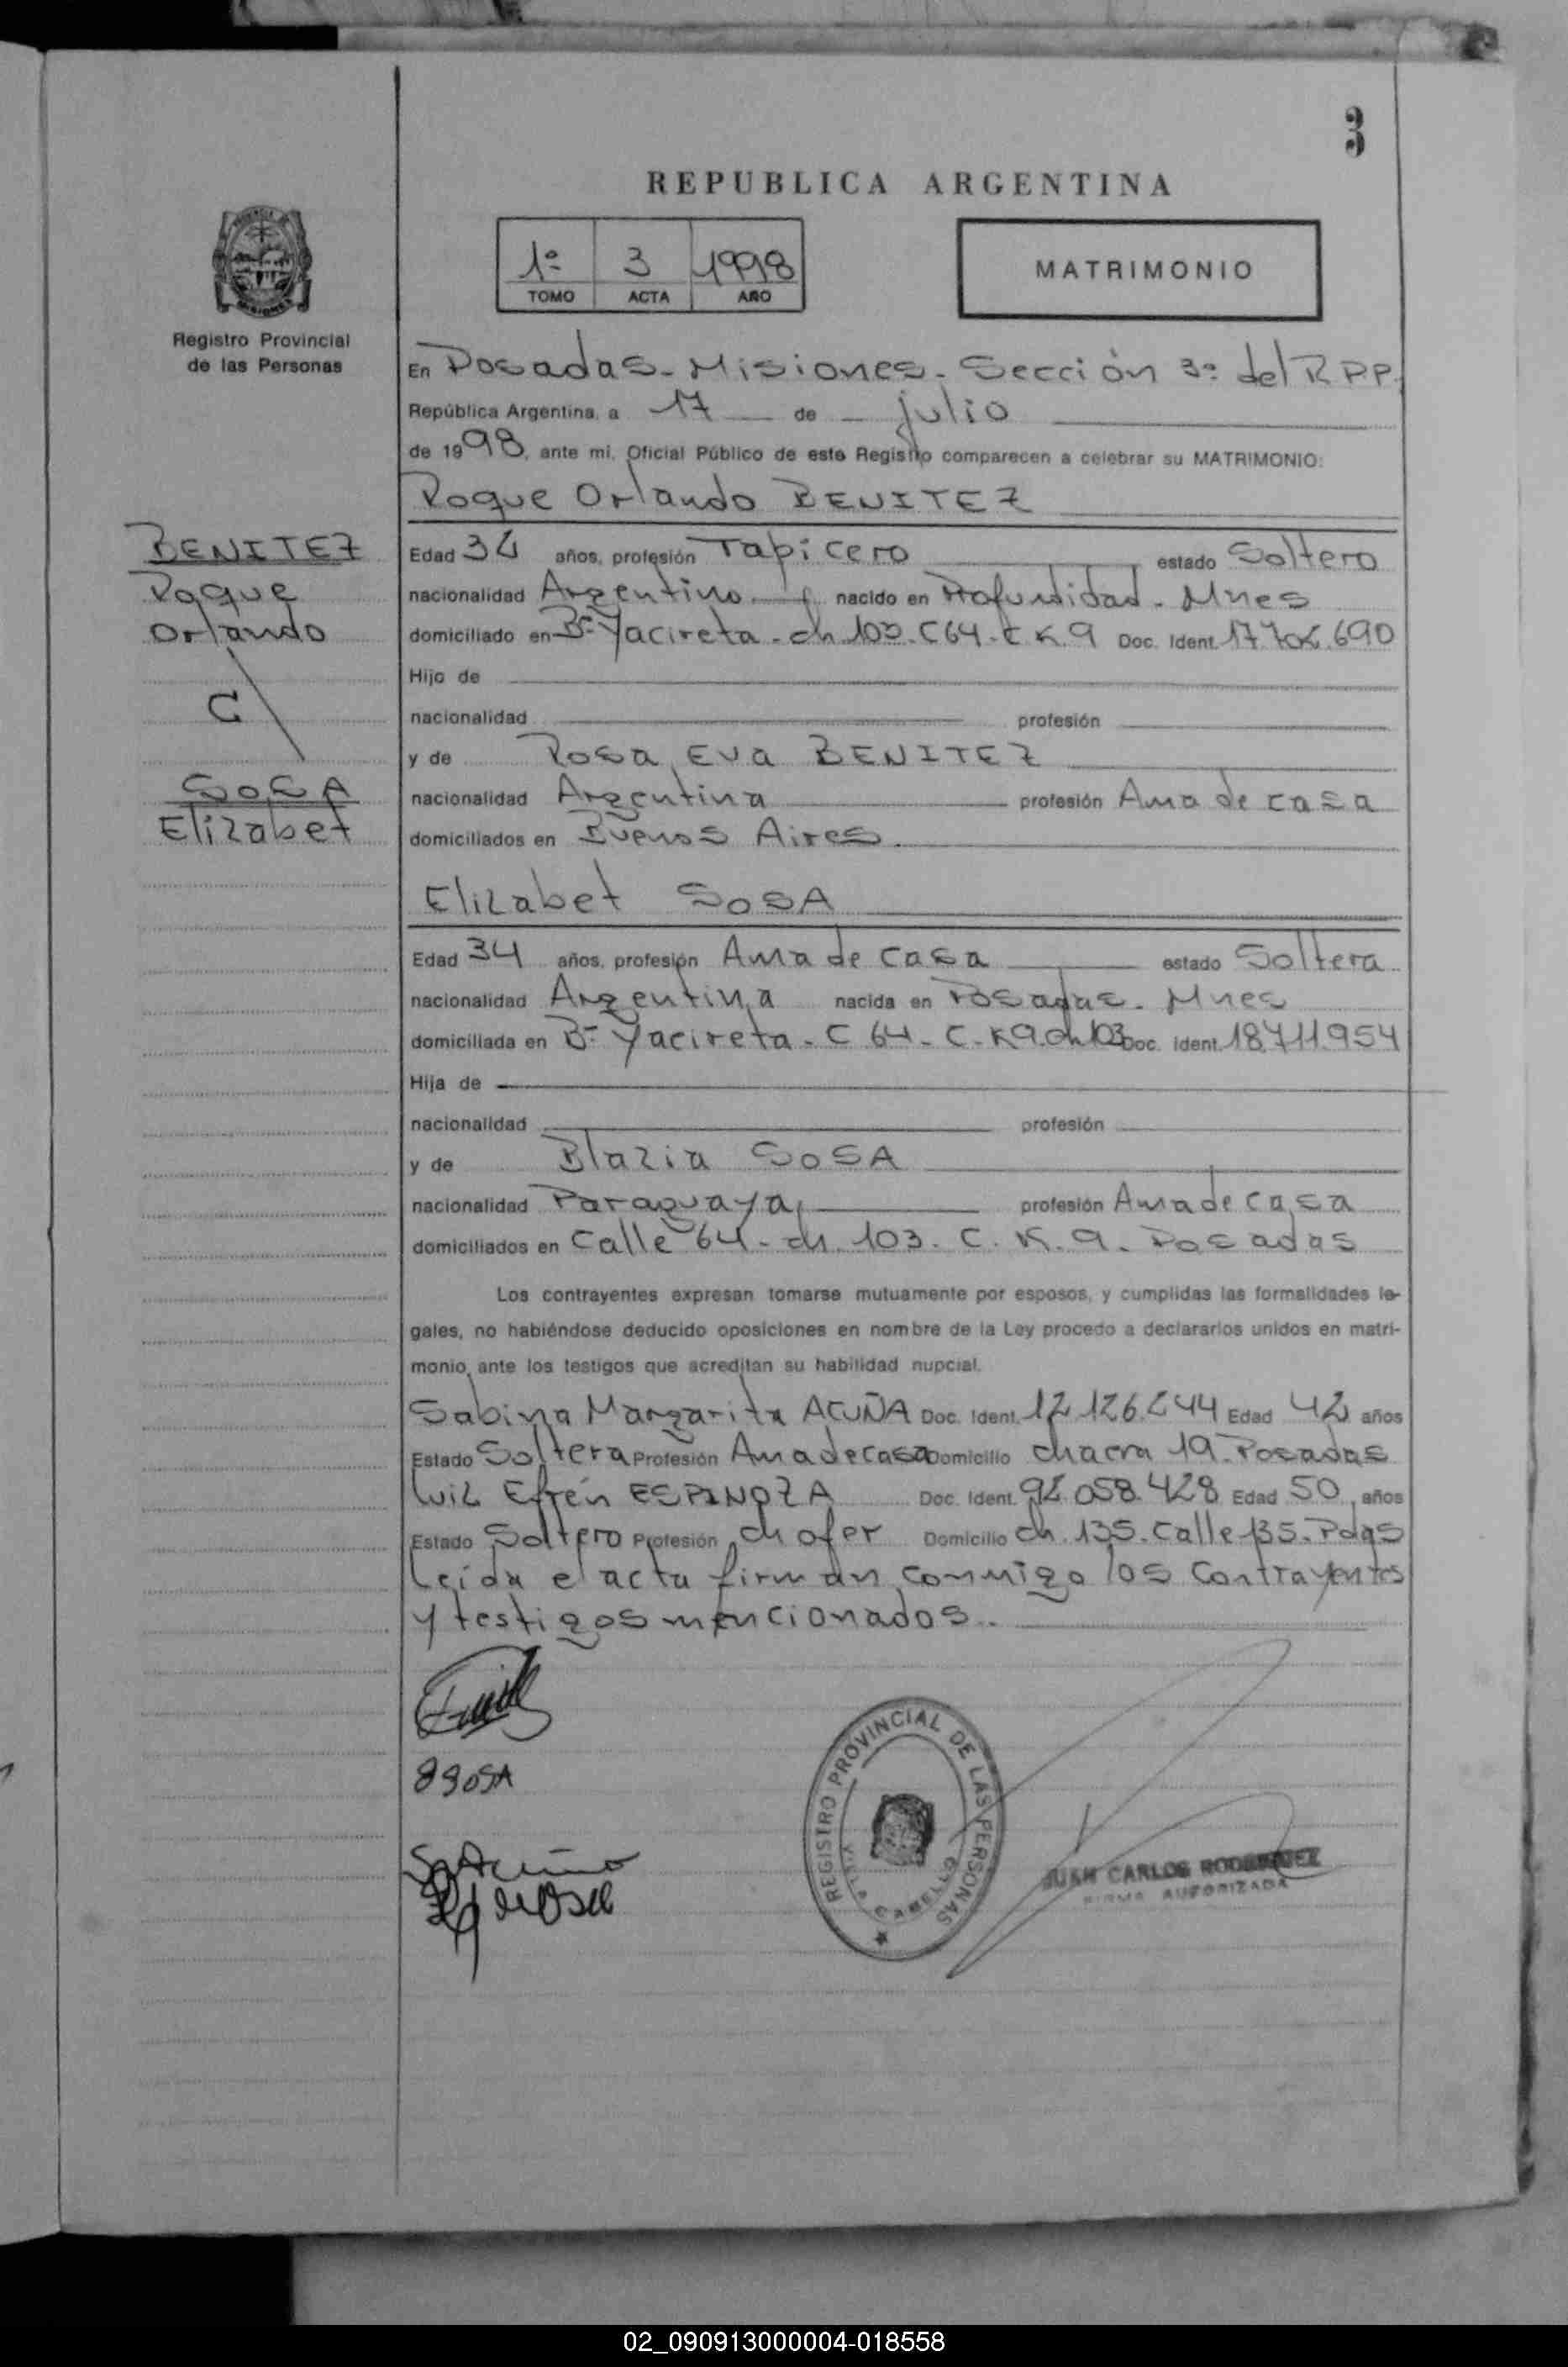 3
REPUBLICA ARGENTINA
1º 3 1998
TOMO ACTA AÑO
MATRIMONIO
Registro Provincial
de las Personas
En Posadas - Misiones - Sección 3ª del R P P.
República Argentina, a 17 de julio
de 1998, ante mi, Oficial Público de este Registro comparecen a celebrar su MATRIMONIO:
Roque Orlando BENITEZ
BENITEZ
Roque
Orlando
C
SOSA
Elizabet
Edad 34 años, profesión Tapicero estado Soltero
nacionalidad Argentino nacido en Profundidad - Mnes
domiciliado en Bº Yacireta - ch 103 - C 64 - C K. 9 Doc. Ident.
Hijo de
nacionalidad profesión
y de Rosa Eva BENITEZ
nacionalidad Argentina profesión Ama de casa
domiciliados en Buenos Aires
Elizabet SOSA
Edad 34 años, profesión Ama de casa estado Soltera
nacionalidad Argentina nacida en Posadas - Mnes
domiciliada en Bº Yacireta - C 64 - C - K9 - ch 103 Doc. Ident. 18.711.954
Hija de
nacionalidad profesión
y de Blazia SOSA
nacionalidad Paraguaya profesión Ama de casa
domiciliados en Calle 64 - ch. 103 - C. K. 9. Posadas
Los contrayentes expresan tomarse mutuamente por esposos, y cumplidas las formalidades le-
gales, no habiéndose deducido oposiciones en nombre de la Ley procedo a declararlos unidos en matri-
monio, ante los testigos que acreditan su habilidad nupcial.
Sabina Margarita ACUÑA Doc. Ident. Edad 42 años
Estado Soltera Profesión Ama de casa Domicilio chacra 19 - Posadas
Luiz Efrén ESPINOZA Doc. Ident. 92.058.428 Edad 50 años
Estado Soltero Profesión chofer Domicilio ch. 135 - Calle 135 - Pdas
Leida el acta firman conmigo los contrayentes
y testigos mencionados.
SOSA
REGISTRO PROVINCIAL DE LAS PERSONAS
VILLA CABELLO
JUAN CARLOS RODRIGUEZ
FIRMA AUTORIZADA
02_090913000004-018558